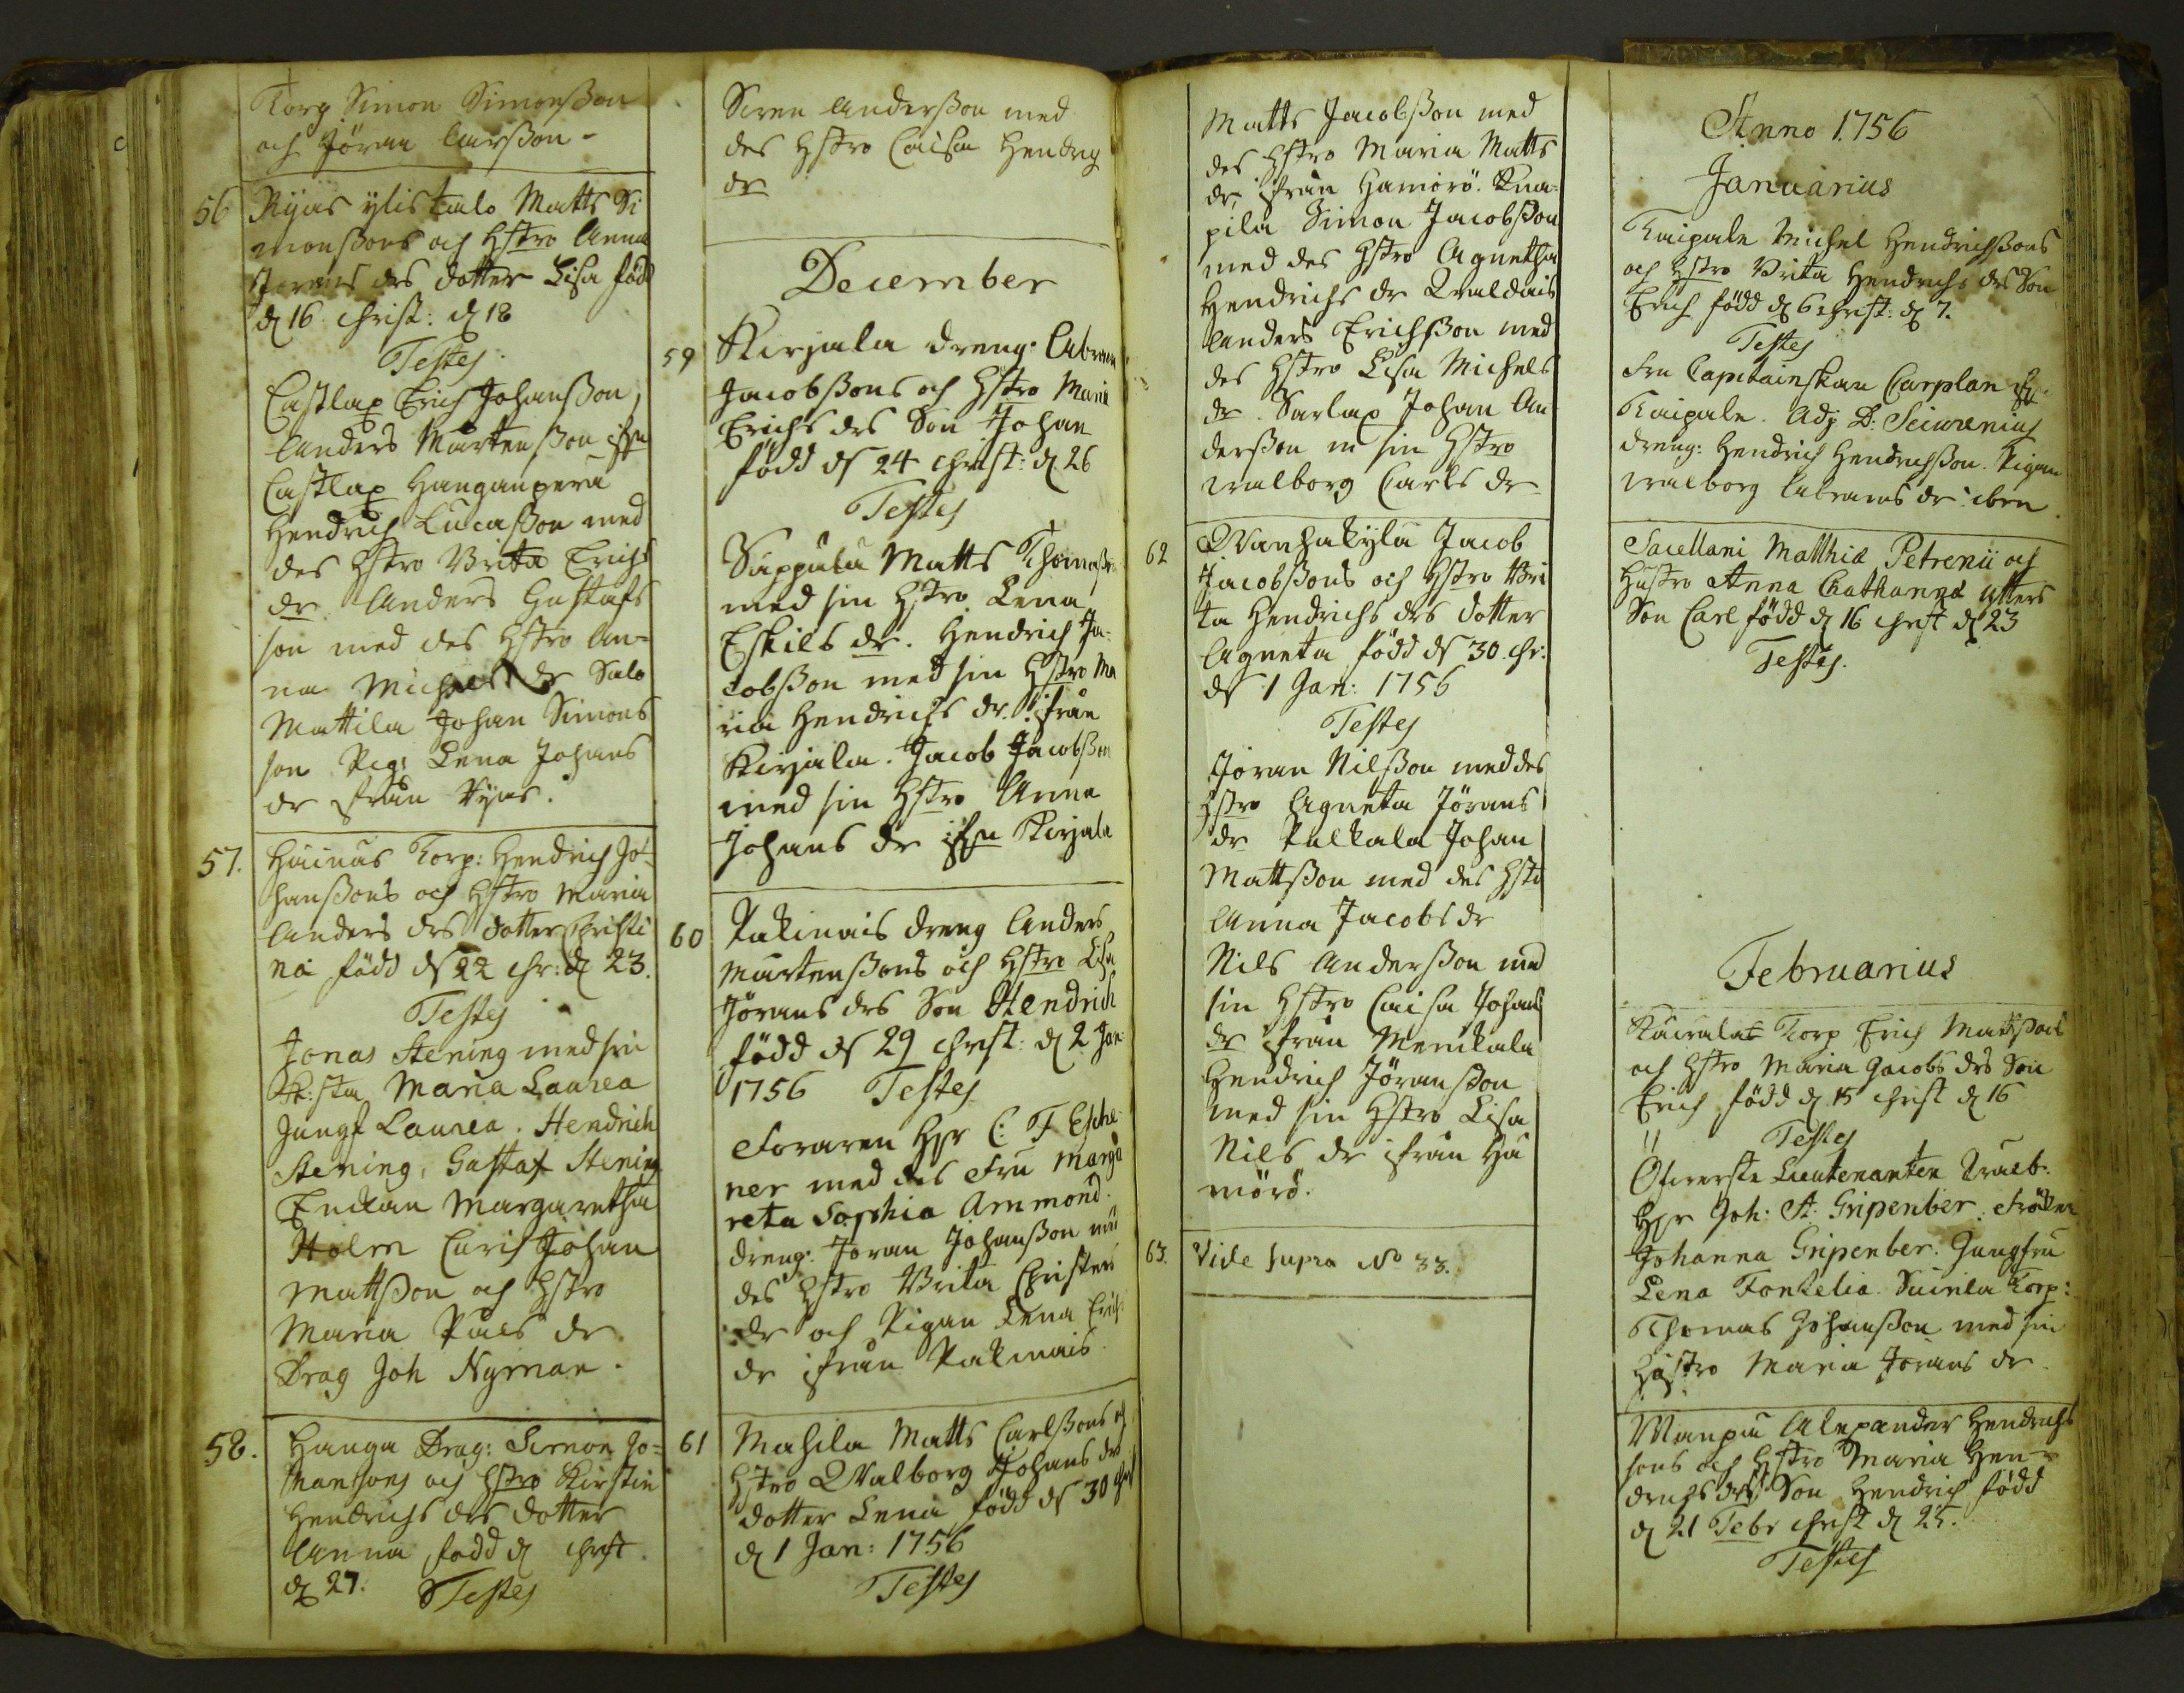 Torp Simon Simonsson
och Jöran Larsson
56 Rÿas ylistalo Matts Si
monssons och Hstro Anna
Jorans drs dotter Lisa född
d 16 Christ: d 18
Testes
Castlax Erich Johansson,
Anders Mårtensson ifrn
Castlax Hanganperä
Hendrich Lucasson med
des Hstro Brita Erichs
dr Anders Gustafs
son med des Hstro An-
na Michels dr Salo
Mattila Johan Simons
son Pig: Lena Johans
dr från Ryas.
57. Torp: Hendrich Jo-
hanssons och Hstro Maria
Anders drs dotter Christi
na född d 22 chr: d 23.
Testes
Jonas Stening med sin
Maria Laurea
Jungf Laurea. Hendrich
Stening, Gustaf Stening
Enckan Margaretha
Holm Johan
Mattsson och Hstro
Maria Påls dr
Drag Joh Nyman.
58. Hanga Drag: Simon Jo-
hansons och Hstro Kirstin
Hendrichs drs dotter
Anna född d christ.
d 27. Testes
Anderson med
des Hstro Caisa Hendrg
dr
December
59 Kirjala dreng: Abram
Jacobssons och Hstro Maria
Erichs drs Son Johan
född d 24 christ: d 26
Testes
Matts Thomasson
med sin Hstro Lena
Eskils dr. Hendrich Ja-
cobsson med sin Hstro Ma
ria Hendrichs dr. ifrån
Kirjala. Jacob Jacobsson
med sin Hstro Anna
Johans dr ifrn Kirjala
60 Pakinais dreng Anders
Mårtenssons och Hstro Lisa
Jörans drs Son Hendrich
född d 29 christ: d 2 Jan:
1756 Testes
Foraren Hr C: F Esche-
ner med des Fru Marga
reta Sophia Ammond.
dreng: Joran Johansson md
des Hstro Brita Christers
dr och Pigan Lena Erichs
dr ifrån Pakinais.
61 Mahila Matts Carlssons och
Hstro Walborg Johans drs
dotter Lena född d 30 chr
d 1 Jan: 1756
Testes
Matts Jacobsson med
des Hstro Maria Matts
dr, ifrån Hamörö. Kna-
pila Simon Jacobsson
med des Hstro Agnetha
Hendrichs dr Qvaldais
Anders Erichsson med
des Hstro Lisa Michels
dr. Sarlax Johan An-
dersson m sin Hstro
Walborg Carls dr
62 Wanhakylä Jacob
Jacobssons och Hstro Bri
ta Hendrichs drs dotter
Agneta född d 30. chr:
d 1 Jan: 1756
Testes
Jöran Nilsson med des
Hstro Agneta Jörans
dr Pulkala Johan
Mattsson med des Hstr
Anna Jacobs dr
Nils Andersson med
sin Hstro Caisa Johans
dr ifrån Menikala
Hendrich Jöransson
med sin Hstro Lisa
Nils dr ifrån Ha
mörö.
63. Vide supra No 33.
Anno 1756
Januarius
Kaipale Michel Hendrichssons
och Hstro Brita Hendrichs drs Son
Erich född d 6 christ: d 7.
Testes
Fru Capitainskan Carplan
Kaipale. Adj. D: Sciurenius
dreng: Hendrich Hendrichsson. Pigan
Walborg Abrams dr ibm.
Sacellani Matthiæ Petrenii och
Hustro Anna Catharina Utters
Son Carl född d 16 christ d 23
Testes.
Februarius
Torp Erich Mattssons
och Hstro Maria Jacobs drs Son
Erich född d 15 christ d 16
Testes
Öfwerste Lieutenanten
Hr Joh: H: Gripenber. Fröken
Johanna Gripenber. Jungfru
Lena Fonselia. Torp:
Thomas Johansson med sin
Hustro Maria Jorans dr.
Manpä Alexander Hendrichs
sons och Hstro Maria Hen-
drichs drs Son Hendrich född
d 21 Febr christ d 25.
Testes